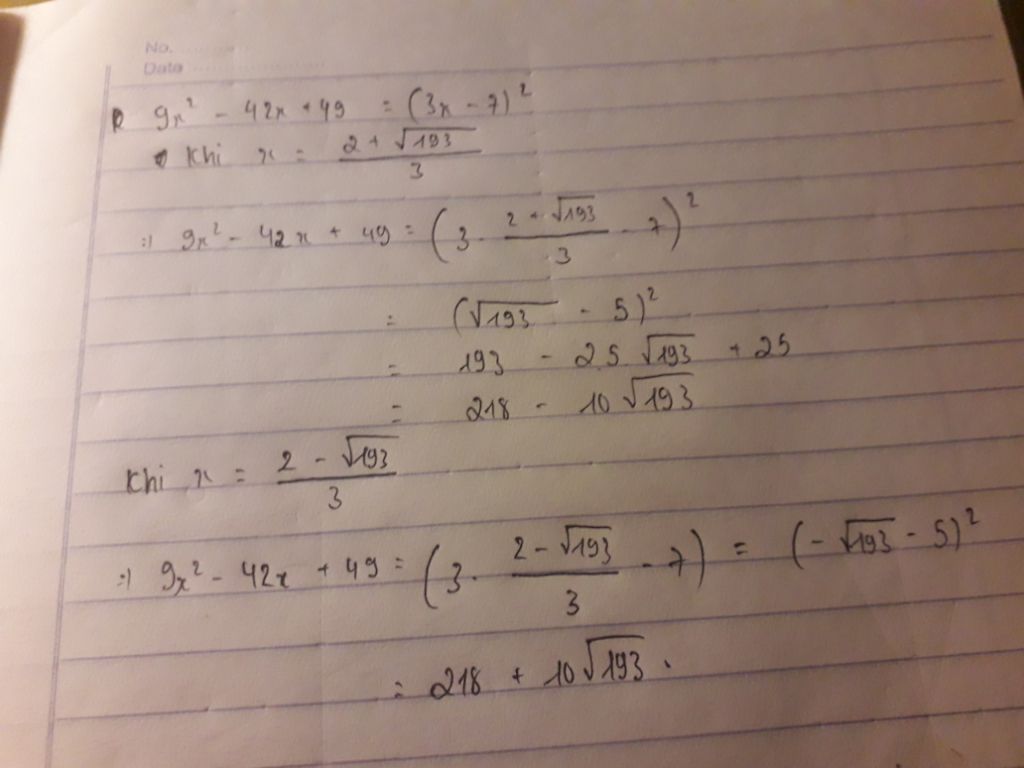 No.
Date
9x² - 42x + 49 = (3x - 7)²
Khi x = (2 + √193)/3
=> 9x² - 42x + 49 = (3 · (2 + √193)/3 - 7)²
= (√193 - 5)²
= 193 - 2.5 √193 + 25
= 218 - 10√193
Khi x = (2 - √193)/3
=> 9x² - 42x + 49 = (3 · (2 - √193)/3 - 7) = (-√193 - 5)²
= 218 + 10√193.